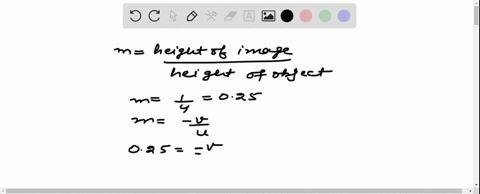 m = height of image
height of object
m = 1/4 = 0.25
m = -v/u
0.25 = -v